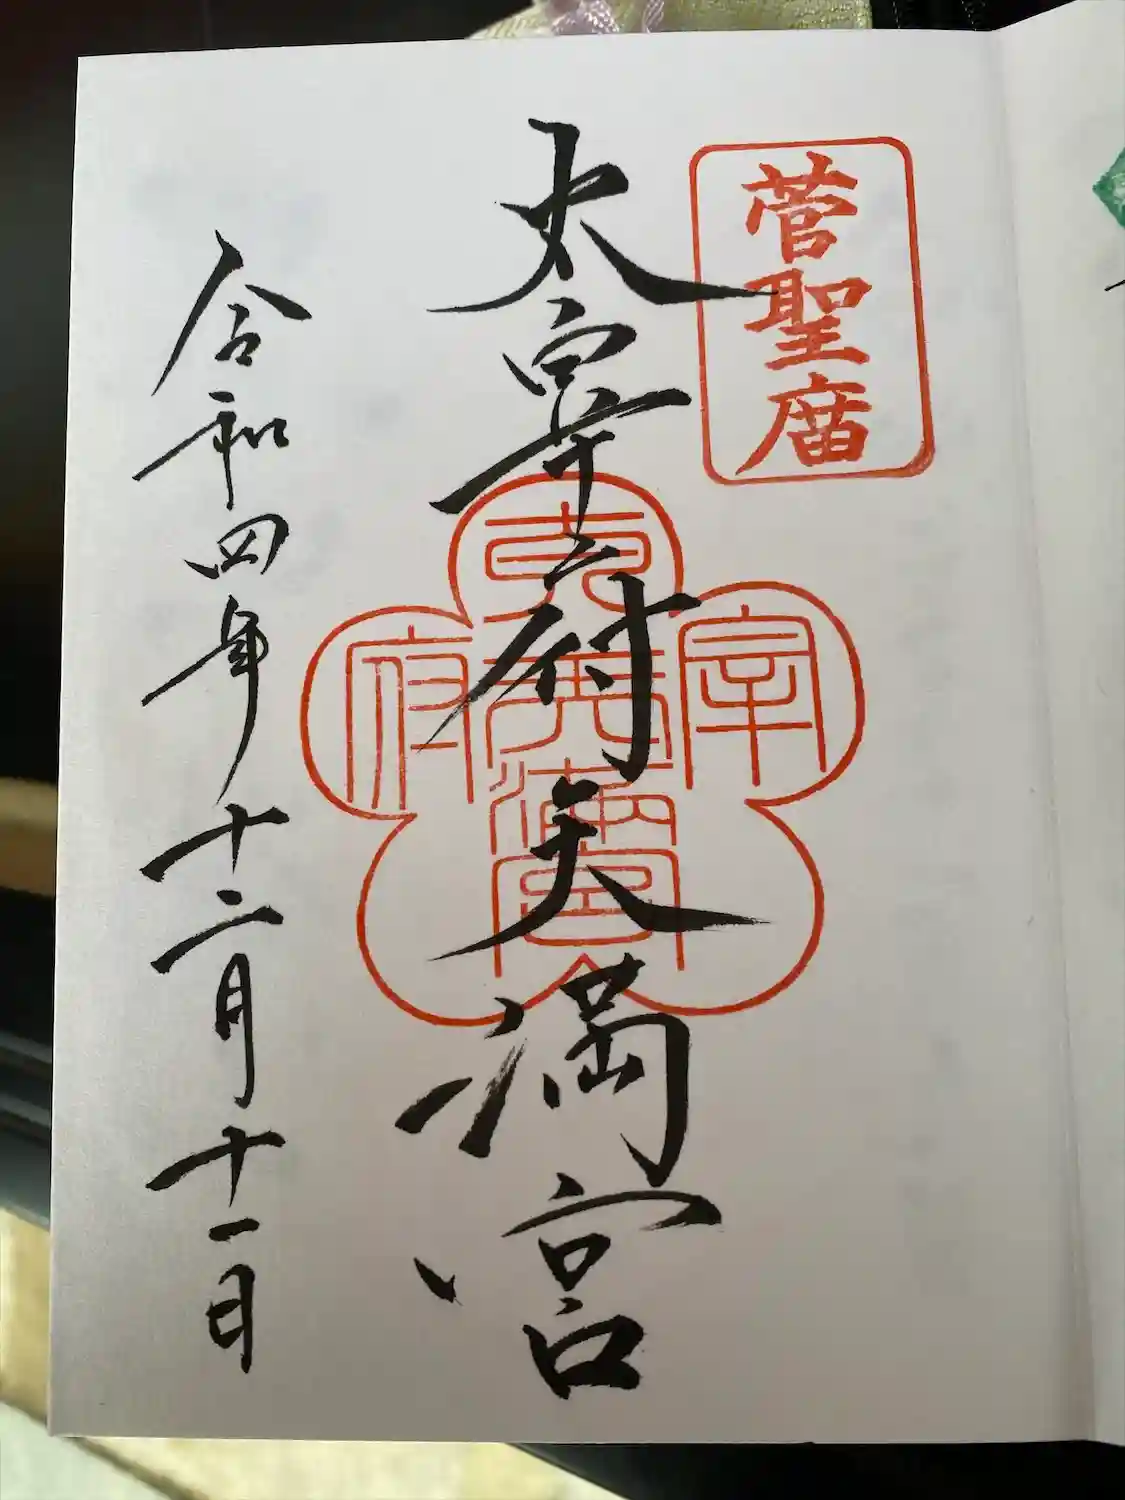 菅聖庿
太宰府天満宮
令和四年十二月十一日
宰
府
天満宮